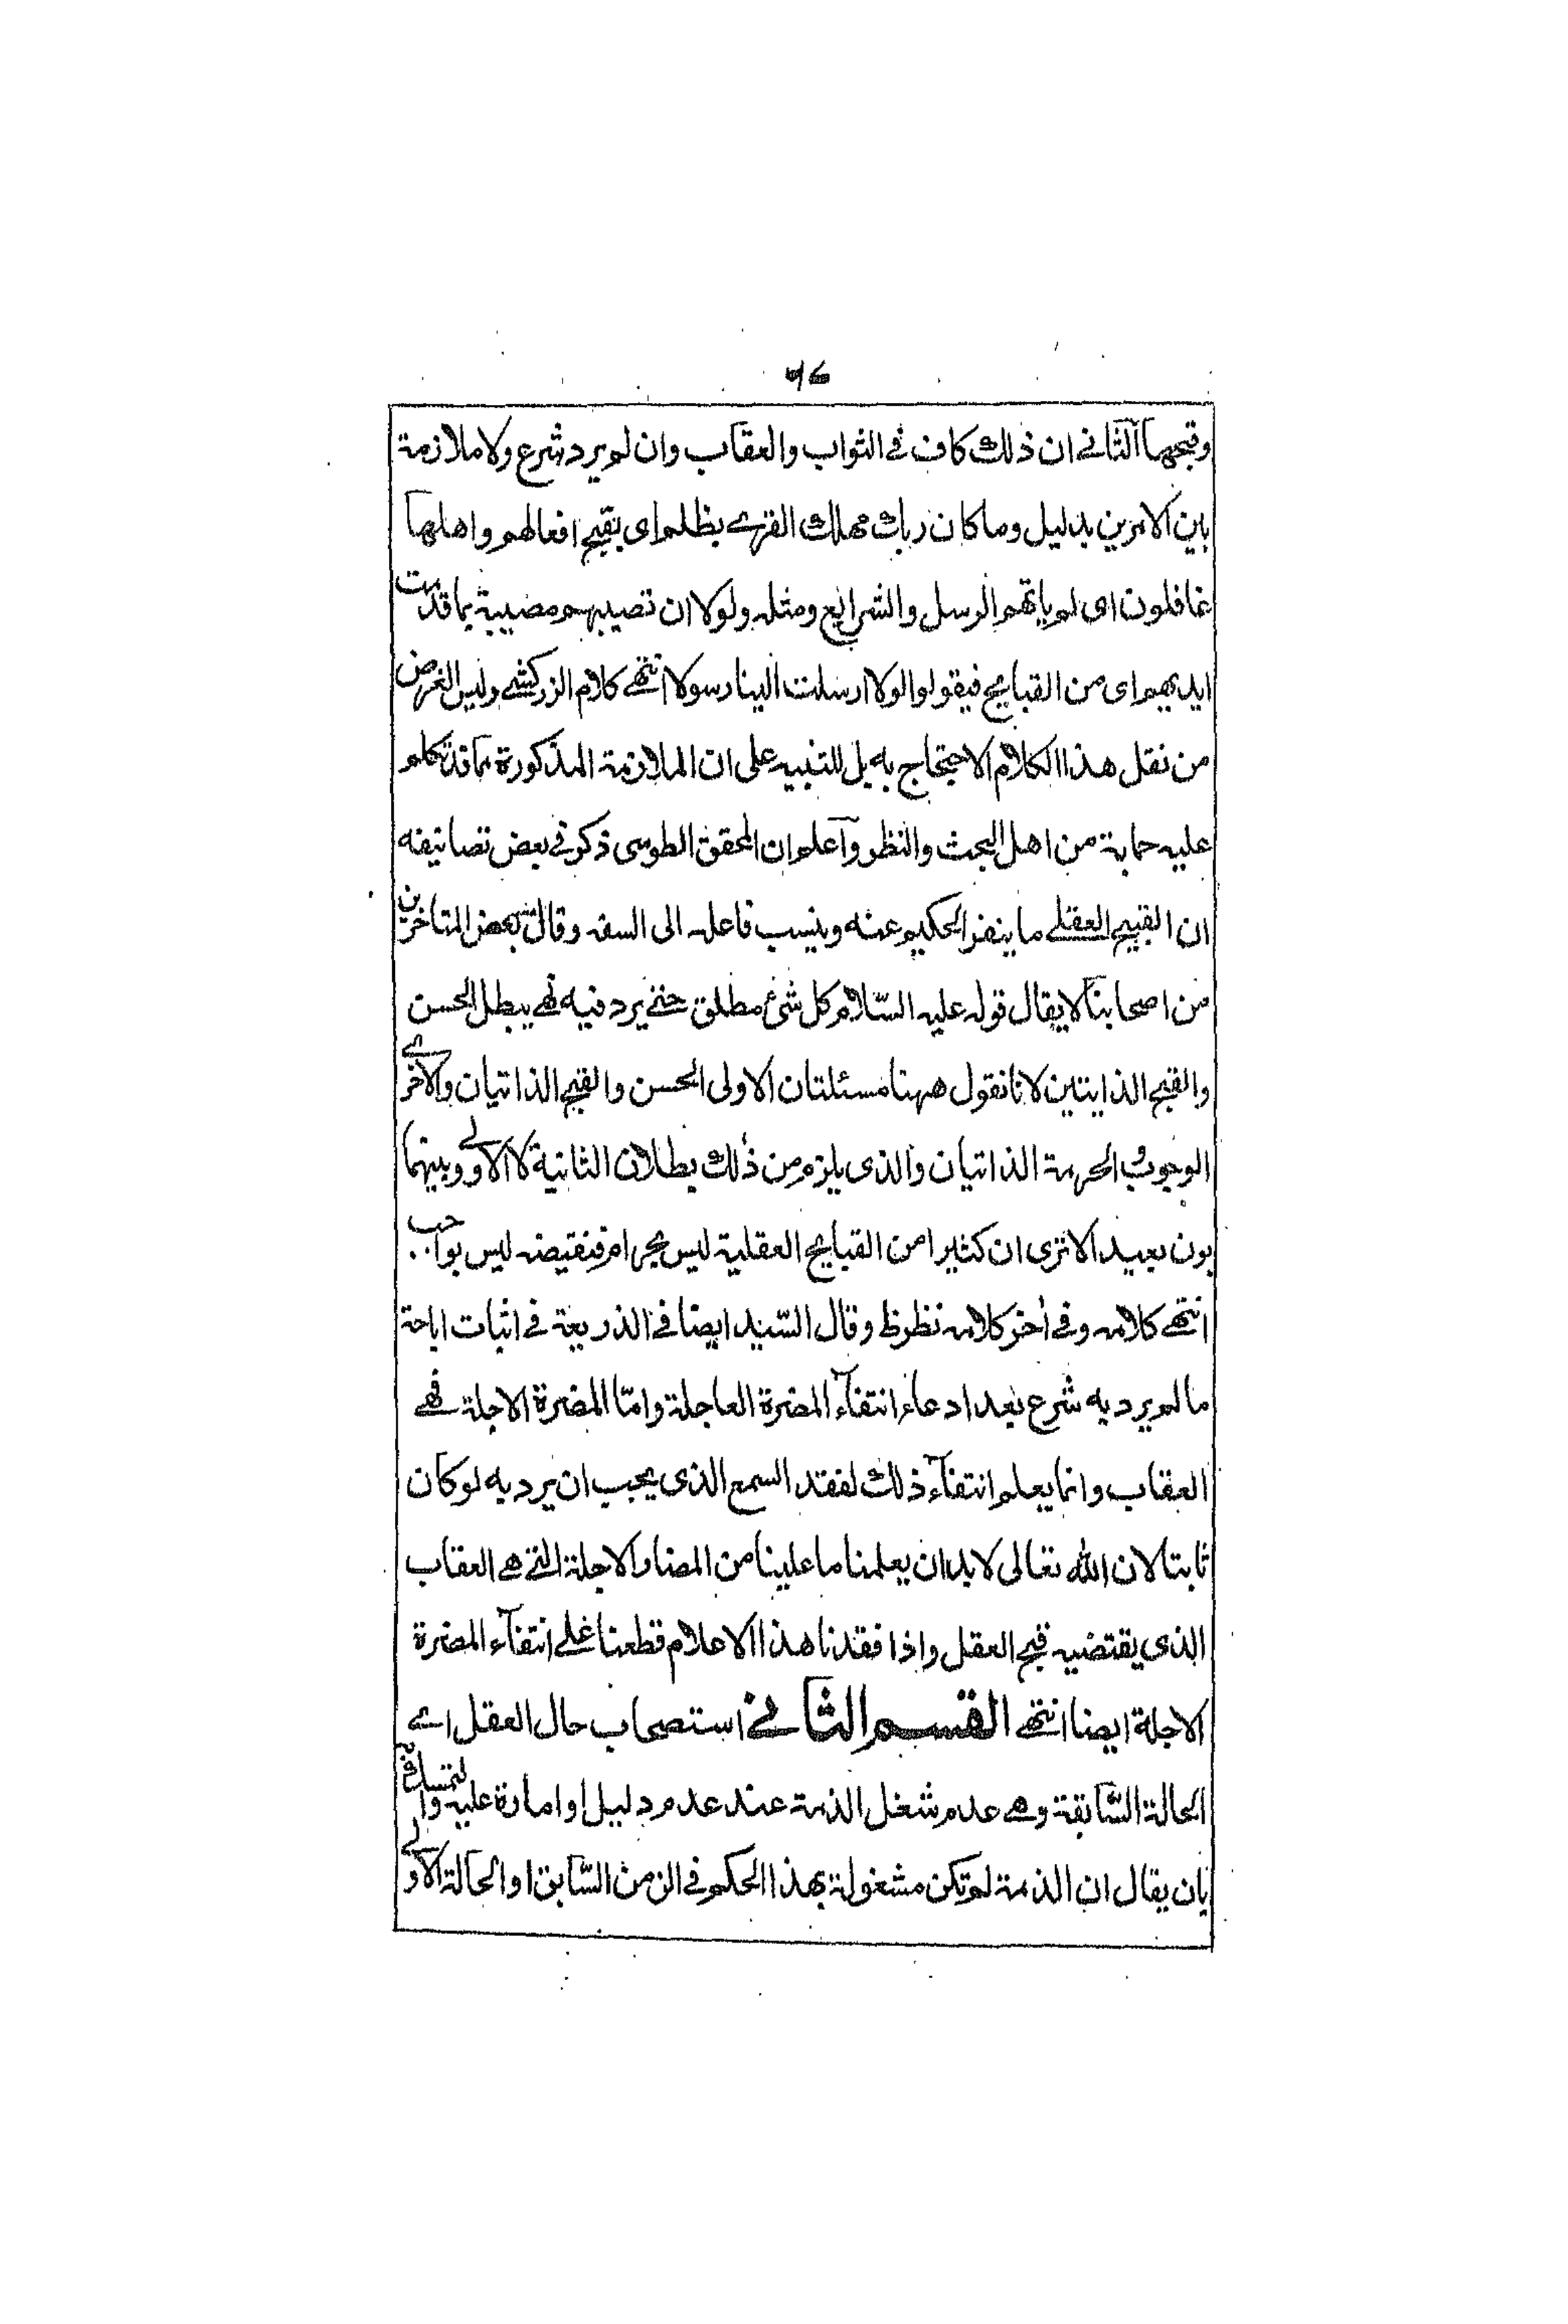 ٧٦
وقبحها الثانى ان ذلك كاف فى الثواب والعقاب وان لم يرد شرع ولا ملازمة
بين الامرين بدليل وما كان ربك مهلك القرى بظلم اى بقبح افعالهم واهلها
غافلون اى لم ياتهم الرسل والشرايع ومثله ولولا ان تصيبهم مصيبة بما قدمت
ايديهم اى من القبايح فيقولوا لولا ارسلت الينا رسولا انتهى كلام الزركشى وليس الغرض
من نقل هذا الكلام الاحتجاج به بل للتنبيه على ان الملازمة المذكورة مما قد تكلم
عليه جماعة من اهل البحث والنظر وآعلم ان المحقق الطوسى ذكر فى بعض تصانيفه
ان القبيح العقلى ما ينفر الحكيم عنه وينسب فاعله الى السفه وقال بعض المتاخرين
من اصحابنا لايقال قوله عليه السّلام كل شئ مطلق حتى يرد فيه نهى يبطل الحسن
والقبح الذاتيين لانا نقول ههنا مسئلتان الاولى الحسن والقبح الذاتيان والاخرى
الوجوب والحرمة الذاتيان والذى يلزم من ذلك بطلان الثانية لا الاولى وبينهما
بون بعيد الا ترى ان كثيرا من القبايح العقلية ليس بحرام فنقيضه ليس بواجب
انتهى كلامه وفى أخر كلامه نظر ظ وقال السّيد ايضا فى الذريعة فى اثبات اباحة
ما لم يرد به شرع بعد ادعاء انتفآء المضرة العاجلة وامّا المضرة الاجلة فهى
العقاب وانما يعلم انتفآء ذلك لفقد السمع الذى يجب ان يرد به لو كان
ثابتا لان الله تعالى لابد ان يعلمنا ما علينا من المضار الاجلة التى هى العقاب
الذى يقتضيه قبح العقل واذا فقدنا هذا الاعلام قطعنا على انتفآء المضرة
الاجلة ايضا انتهى القسم الثانى استصحاب حال العقل اى
الحالة السّابقة وهى عدم شغل الذمة عند عدم دليل او امارة عليه والتمسك به
بان يقال ان الذمة لم تكن مشغولة بهذا الحكم فى الزمن السّابق او الحالة الاولى